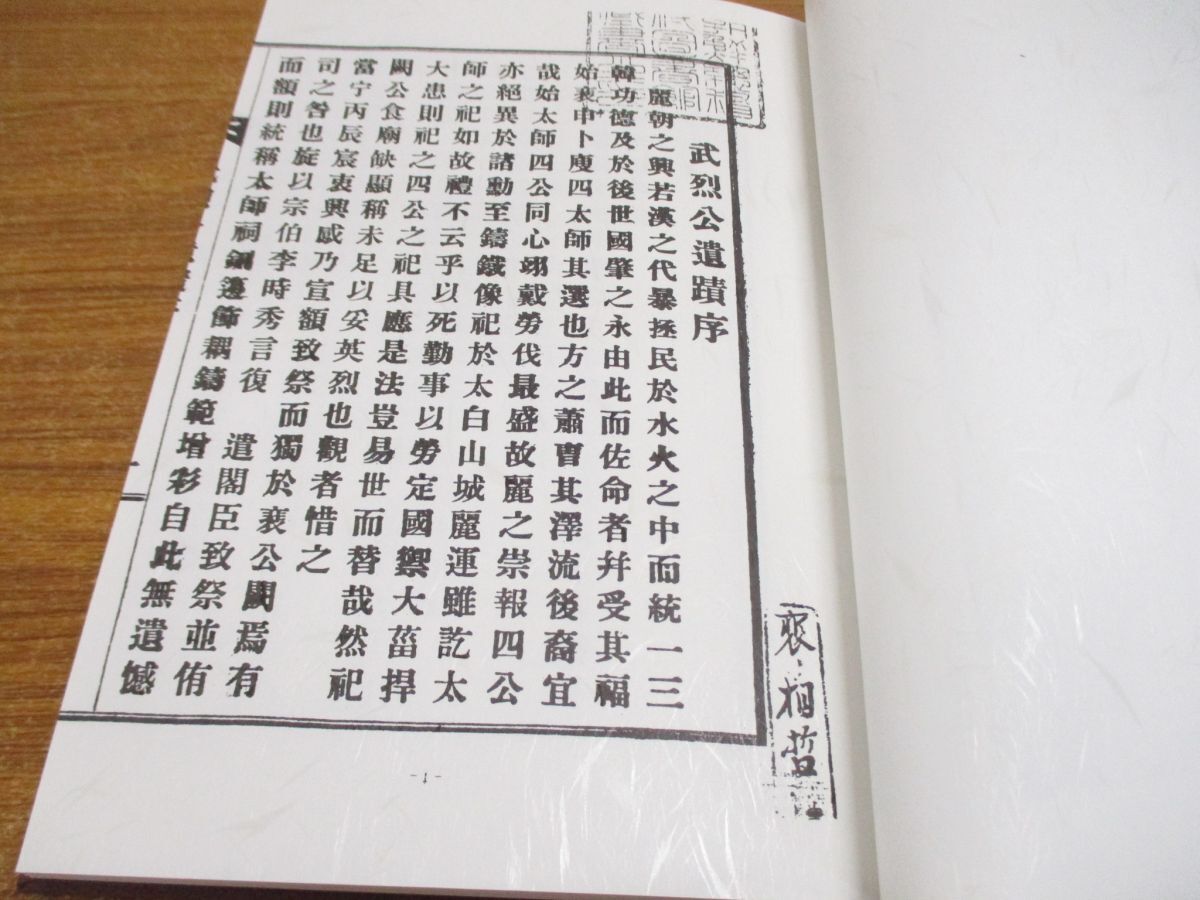 武烈公遺蹟序
麗朝之興若漢之代暴拯民於水火之中而統一三
韓功德及於後世國肇之永由此而佐命者幷受其福
始裵申卜庾四太師其選也方之蕭曹其澤流後裔宜
哉始太師四公同心翊戴勞伐最盛故麗之崇報四公
亦絕異於諸勳至鑄鐵像祀於太白山城麗運雖訖太
師之祀如故禮不云乎以死勤事以勞定國禦大菑捍
大患則祀之四公之祀具應是法豈易世而替哉然祀
闕公食廟缺顯稱未足以妥英烈也觀者惜之
當宁丙辰宸衷興感乃宣額致祭而獨於裵公闕焉有
司之咎也旋以宗伯李時秀言復 遣閣臣致祭並侑
而額則統稱太師祠籩耦鑄範增彩自此無遺憾
裵相哲
-1-